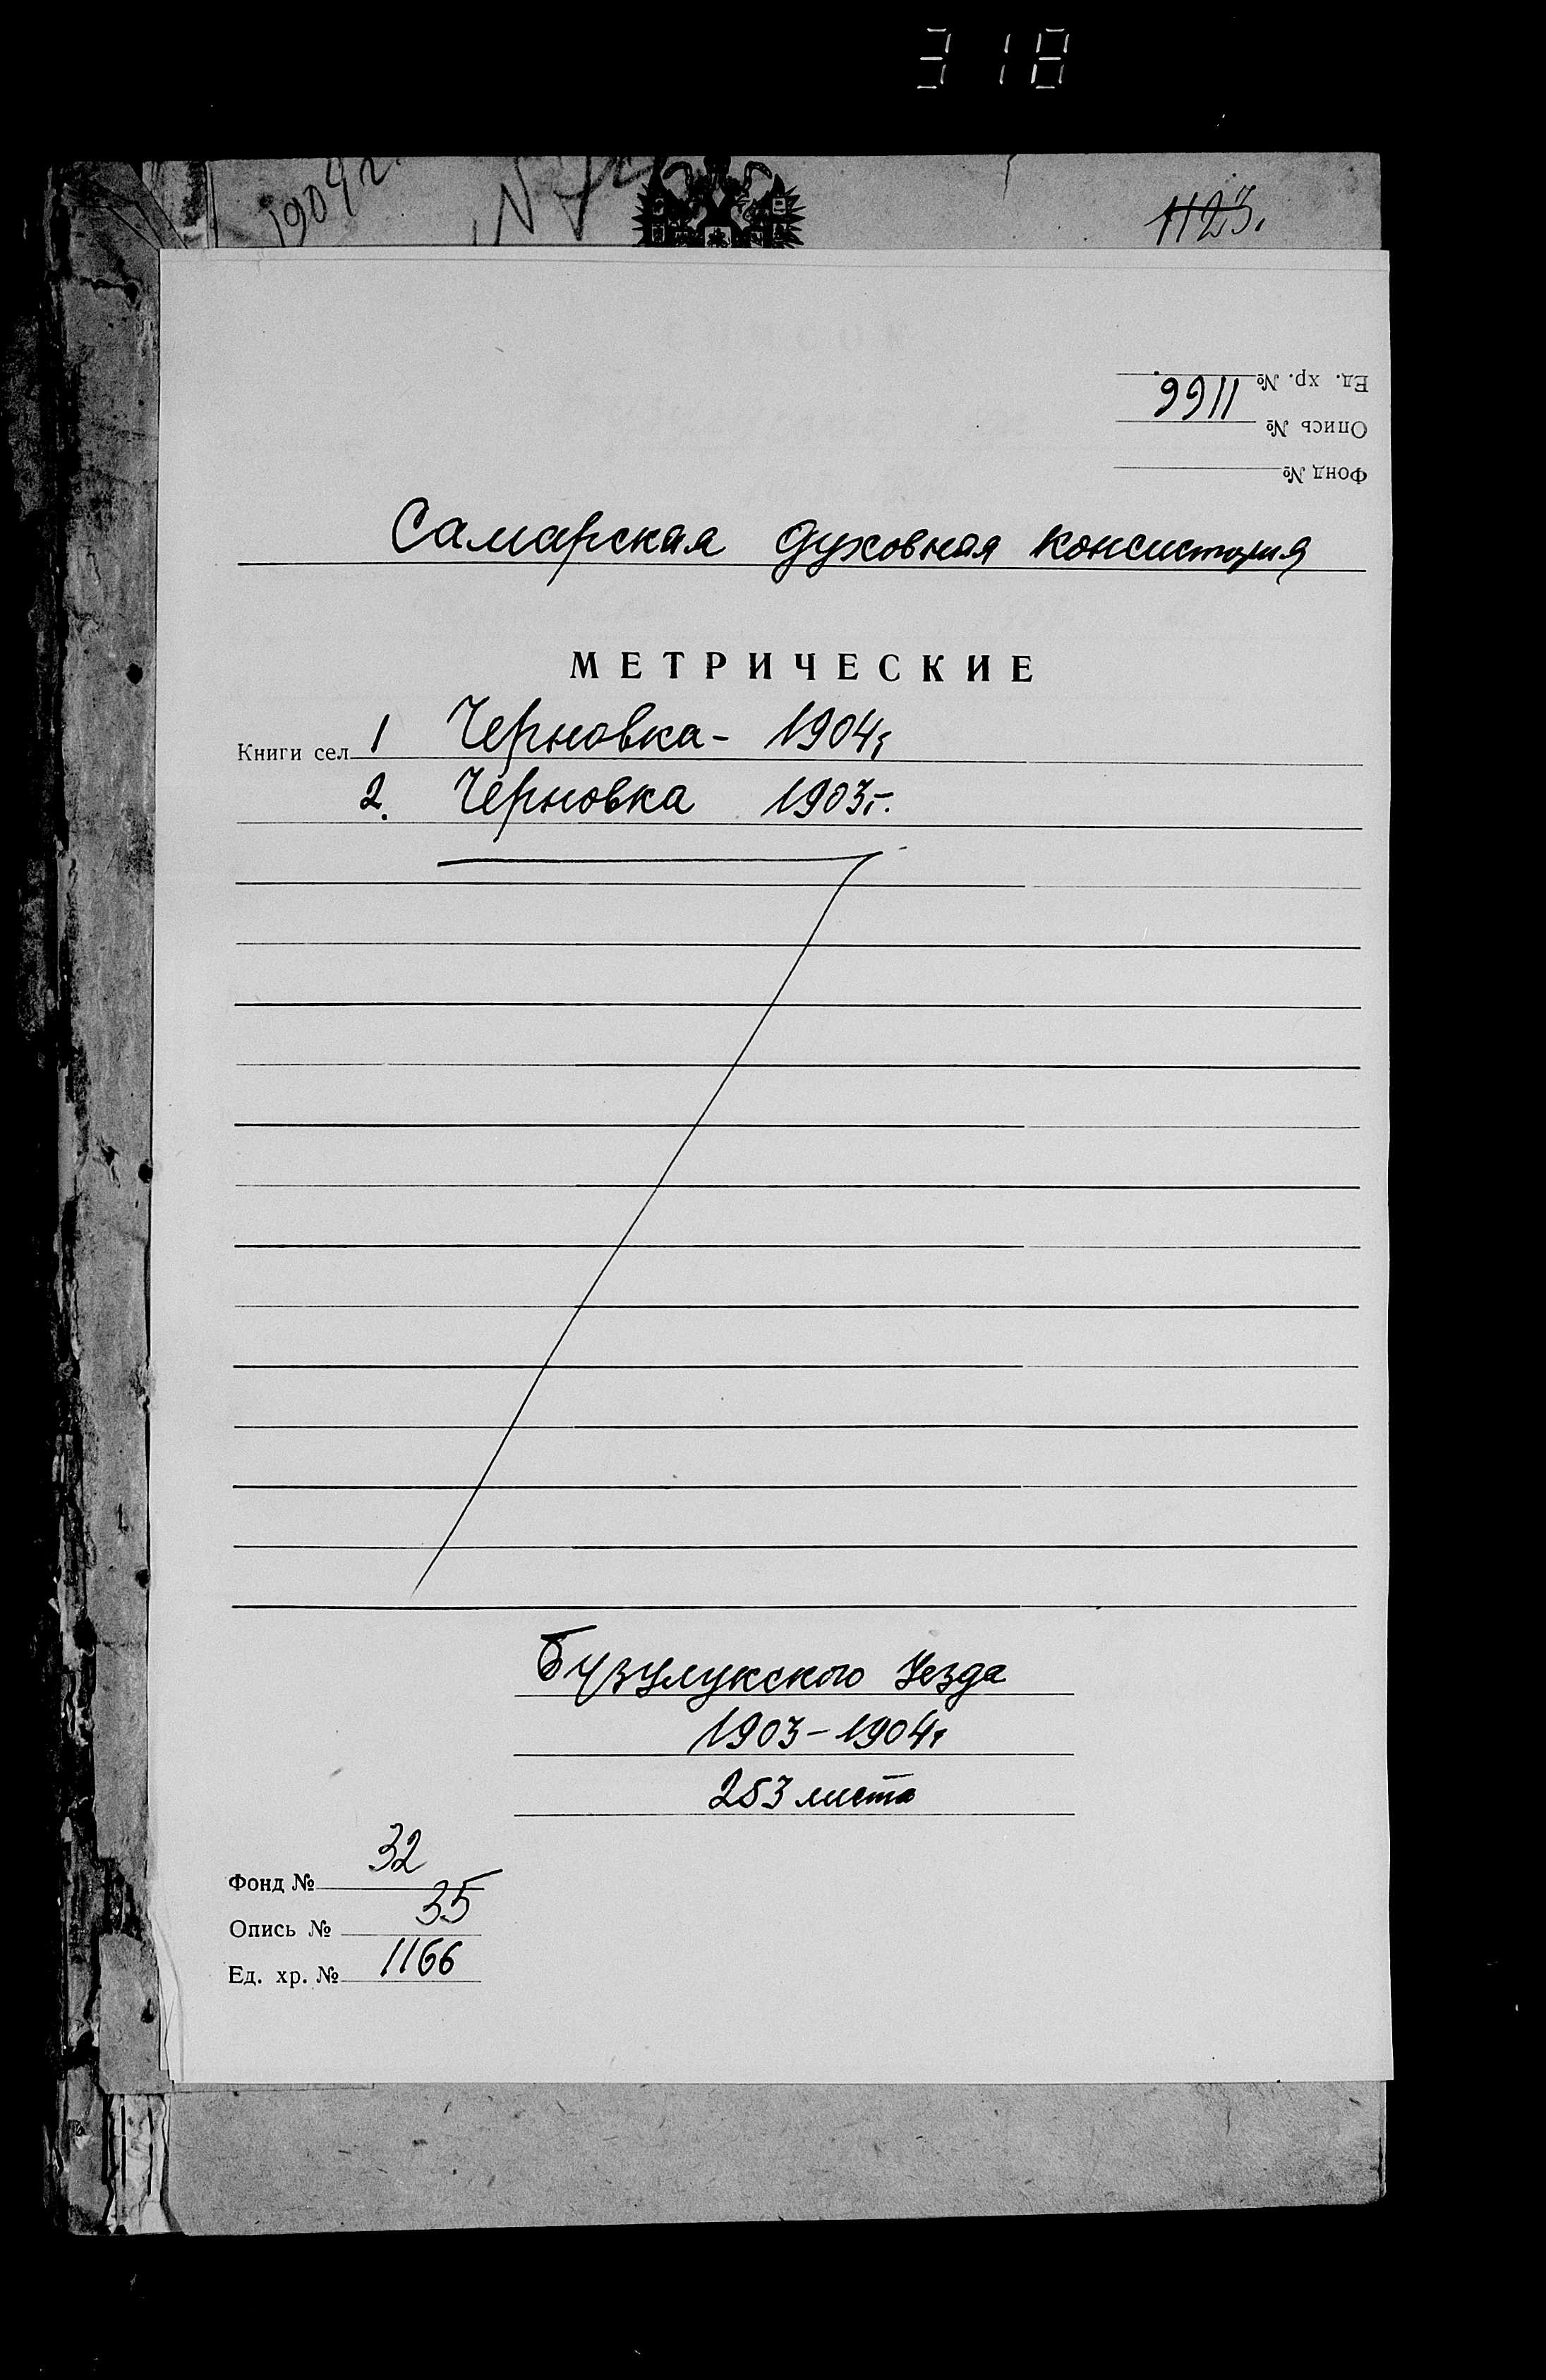 318
1904 г.
1123.
Ед. хр. №
Опись № 1166
Фонд №
Самарская духовная консистория
МЕТРИЧЕСКИЕ
Книги сел 1 Черновка - 1904г
2. Черновка 1903г.
Бузулукского Уезда
1903-1904г
253 листа
Фонд № 32
Опись № 35
Ед. хр. № 1166